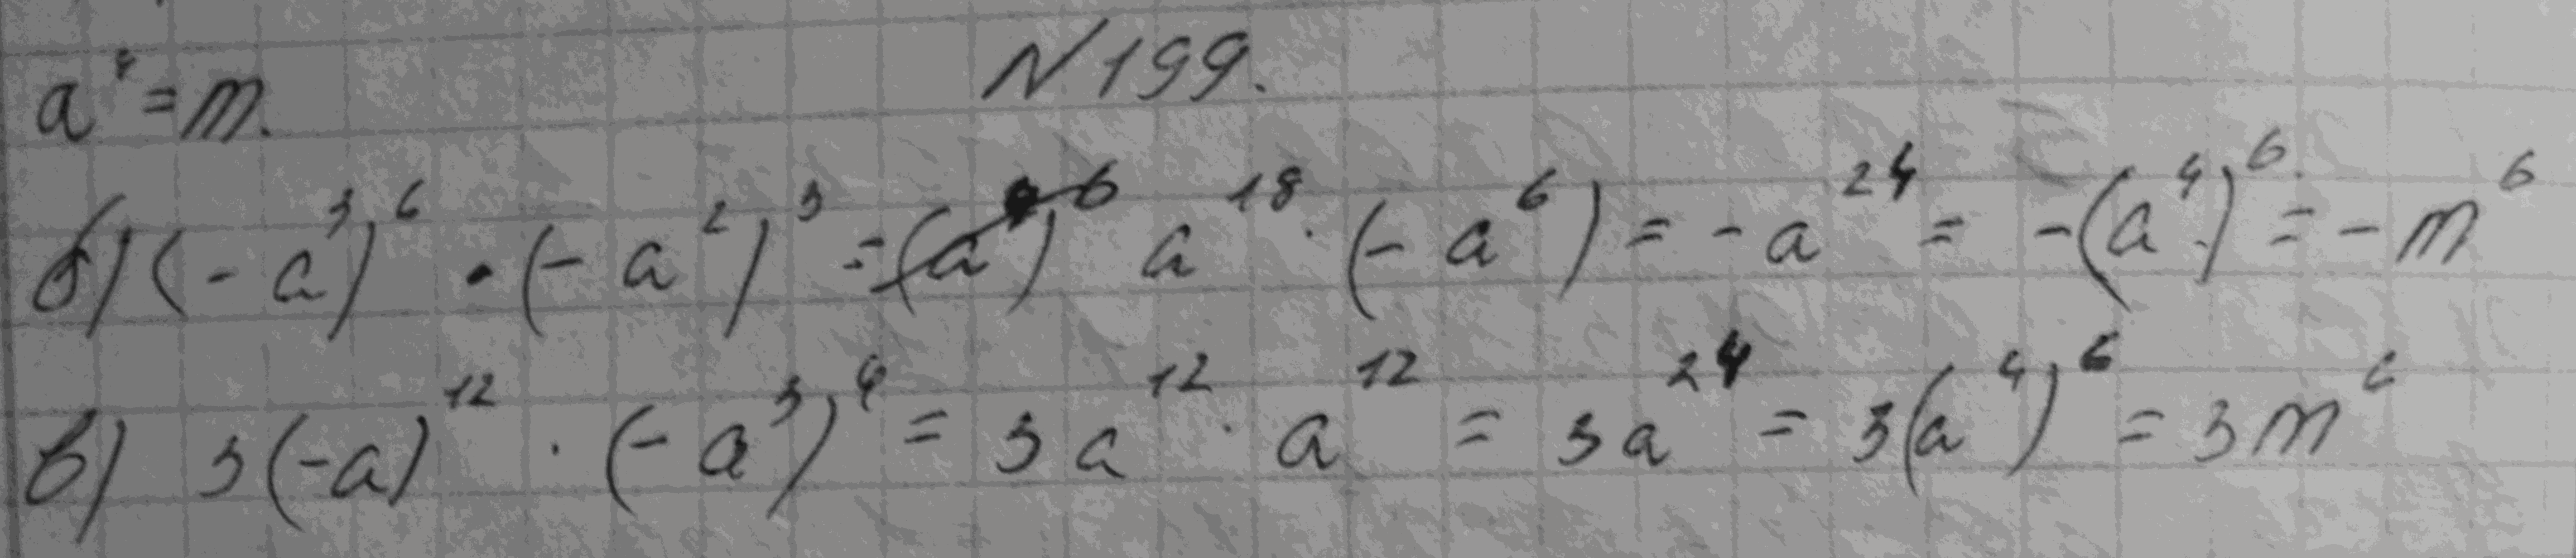 №199.
a⁴ = m.
б) (-a³)⁶ · (-a²)³ = a¹⁸ · (-a⁶) = -a²⁴ = -(a⁴)⁶ = -m⁶
в) 3(-a)¹² · (-a³)⁴ = 3a¹² · a¹² = 3a²⁴ = 3(a⁴)⁶ = 3m⁶